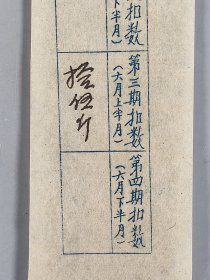 扣数
下半月）
第三期扣数
（六月上半月）
拾伍斤
第四期扣数
（六月下半月）